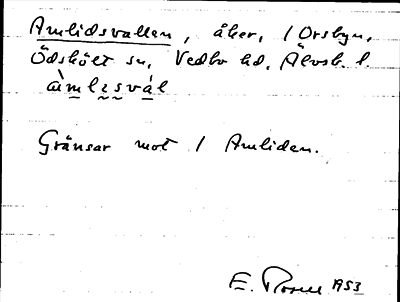 Amlidsvallen, åker, 1 Orsbyn,
Ödskölt sn, Vedbo hd, Älvsb. l.
àmlesvál
Gränsar mot 1 Amliden.
E. 1953